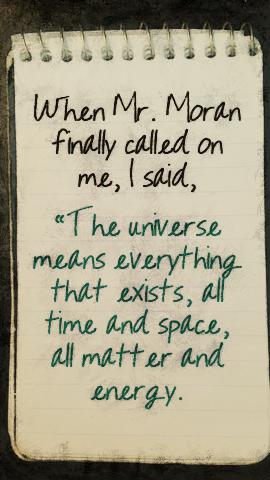 When Mr. Moran
finally called on
me, I said,
“The universe
means everything
that exists, all
time and space,
all matter and
energy.